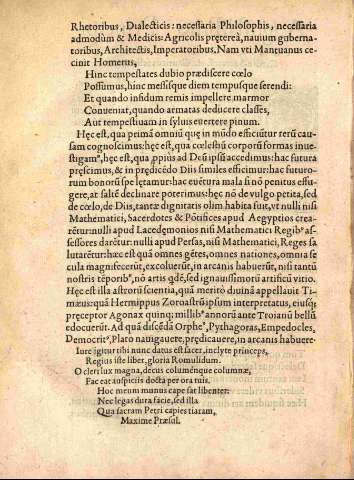 Rhetoribus, Dialecticis: necessaria Philosophis, necessaria
admodùm & Medicis: Agricolis prętereà, nauium guberna-
toribus, Architectis, Imperatoribus, Nam vti Mantuanus ce-
cinit Homerus,
Hinc tempestates dubio prædiscere cœlo
Possumus, hinc messisque diem tempusque serendi:
Et quando infidum remis impellere marmor
Conueniat, quando armatas deducere classes,
Aut tempestiuam in syluis euertere pinum.
Hęc est, qua primā omniū quę in mūdo efficiūtur rerū cau-
sam cognoscimus: hęc est, qua cœlestiū corporū formas inue-
stigamꝰ, hęc est, qua ꝓpius ad Deū ipsū accedimus: hac futura
pręscimus, & in prædicēdo Diis similes efficimur: hac futuro-
rum bonorū spe lętamur: hac euētura mala si nō penitus effu-
gere, at saltē declinare poterimus: hęc nō de vulgo petita, sed
de cœlo, de Diis, tantæ dignitatis olim habita fuit, vt nulli nisi
Mathematici, Sacerdotes & Pōtifices apud Aegyptios crea-
rētur: nulli apud Lacedęmonios nisi Mathematici Regibꝰ as-
sessores darētur: nulli apud Persas, nisi Mathematici, Reges sa
lutarētur: hæc est quā omnes gētes, omnes nationes, omnia se
cula magnifecerūt, excoluerūt, in arcanis habuerūt, nisi tantū
nostris tēporibꝰ, nō artis qdē, sed ignauissimorū artificū vitio.
Hęc est illa astrorū scientia, quā meritò diuinā appellauit Ti-
mæus: quā Hermippus Zoroastrū ipsum interpretatus, eiusq;
pręceptor Agonax quinq; millibꝰ annorū ante Troianū bellū
edocuerūt. Ad quā discēdā Orpheꝰ, Pythagoras, Empedocles,
Democritꝰ, Plato nauigauere, prędicauere, in arcanis habuere.
Iure igitur tibi nunc datus est sacer, inclyte princeps,
Regius iste liber, gloria Romulidum.
O cleri lux magna, decus columénque columnæ,
Fac eat auspiciis docta per ora tuis.
Hoc meum munus cape sat libenter:
Nec legas dura facie, sed illa
Qua sacram Petri capies tiaram,
Maxime Præsul.